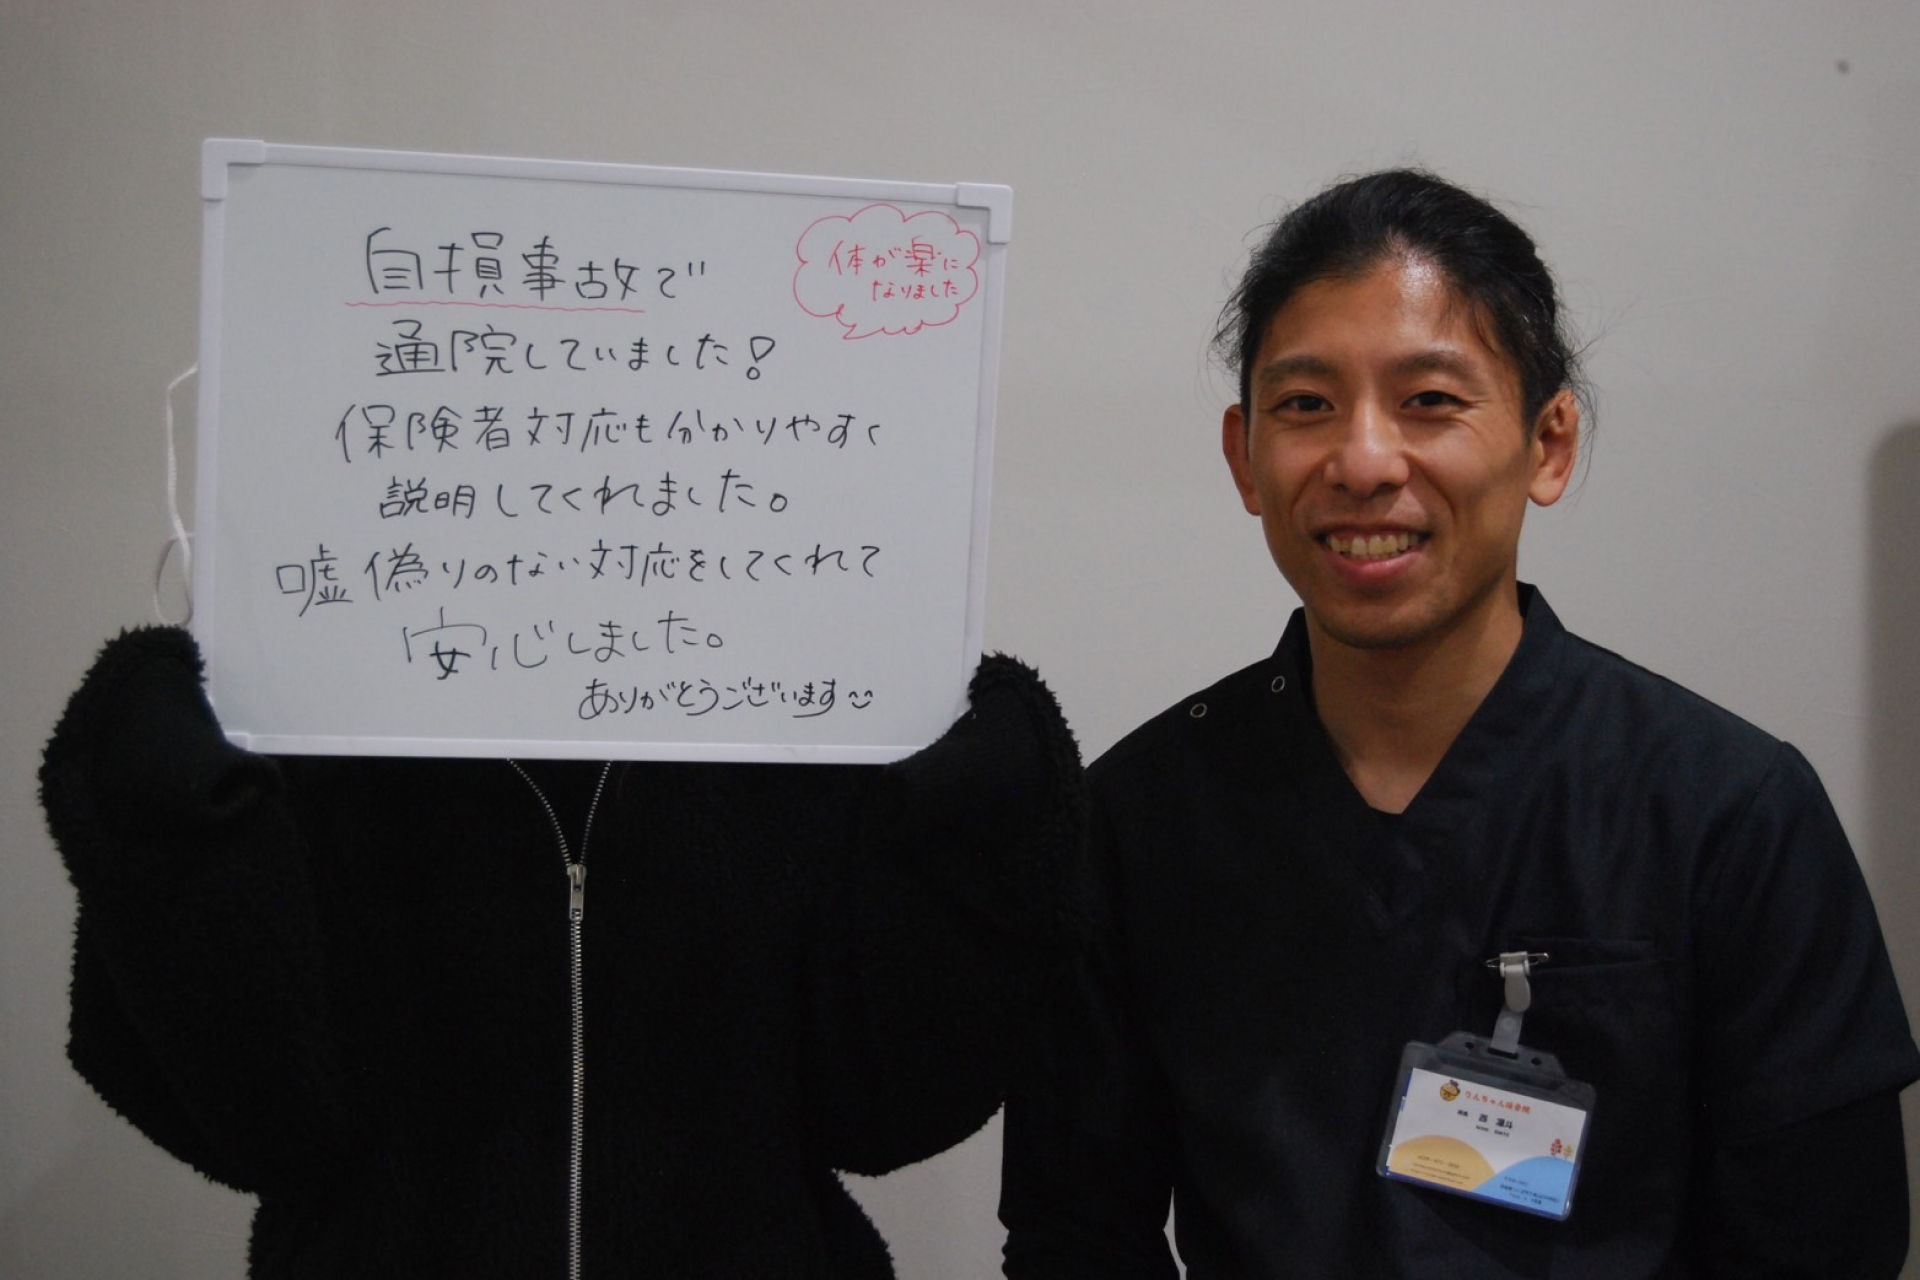 自損事故で
体が楽に
なりました
通院していました!
保険者対応も分かりやすく
説明してくれました。
嘘偽りのない対応をしてくれて
安心しました。
ありがとうございます
りんちゃん接骨院
西 凛斗